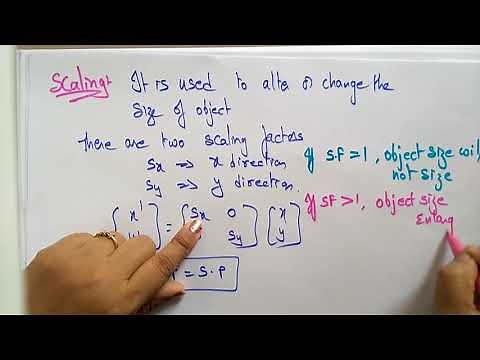 Scaling:- It is used to alter or change the
size of object
There are two scaling factors
Sx => x direction
Sy => y direction.
[x'] = [Sx 0] [x]
Sy] [y]
= S.P
If S.F = 1, object size
not size
If SF > 1, object size
Enlarg